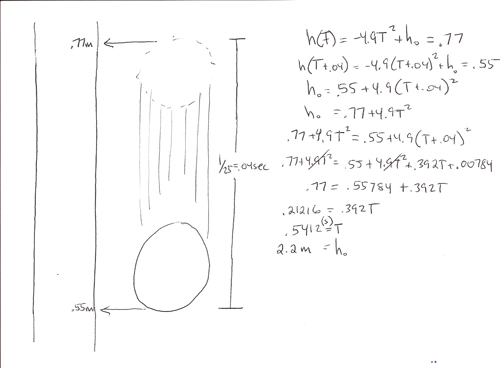 .77m
1/25=.04sec
.55m
h(T) = -4.9T² + h₀ = .77
h(T+.04) = -4.9(T+.04)² + h₀ = .55
h₀ = .55 + 4.9(T+.04)²
h₀ = .77 + 4.9T²
.77 + 4.9T² = .55 + 4.9(T+.04)²
.77 + 4.9T² = .55 + 4.9T² + .392T + .00784
.77 = .55784 + .392T
.21216 = .392T
.5412(s) = T
2.2m = h₀